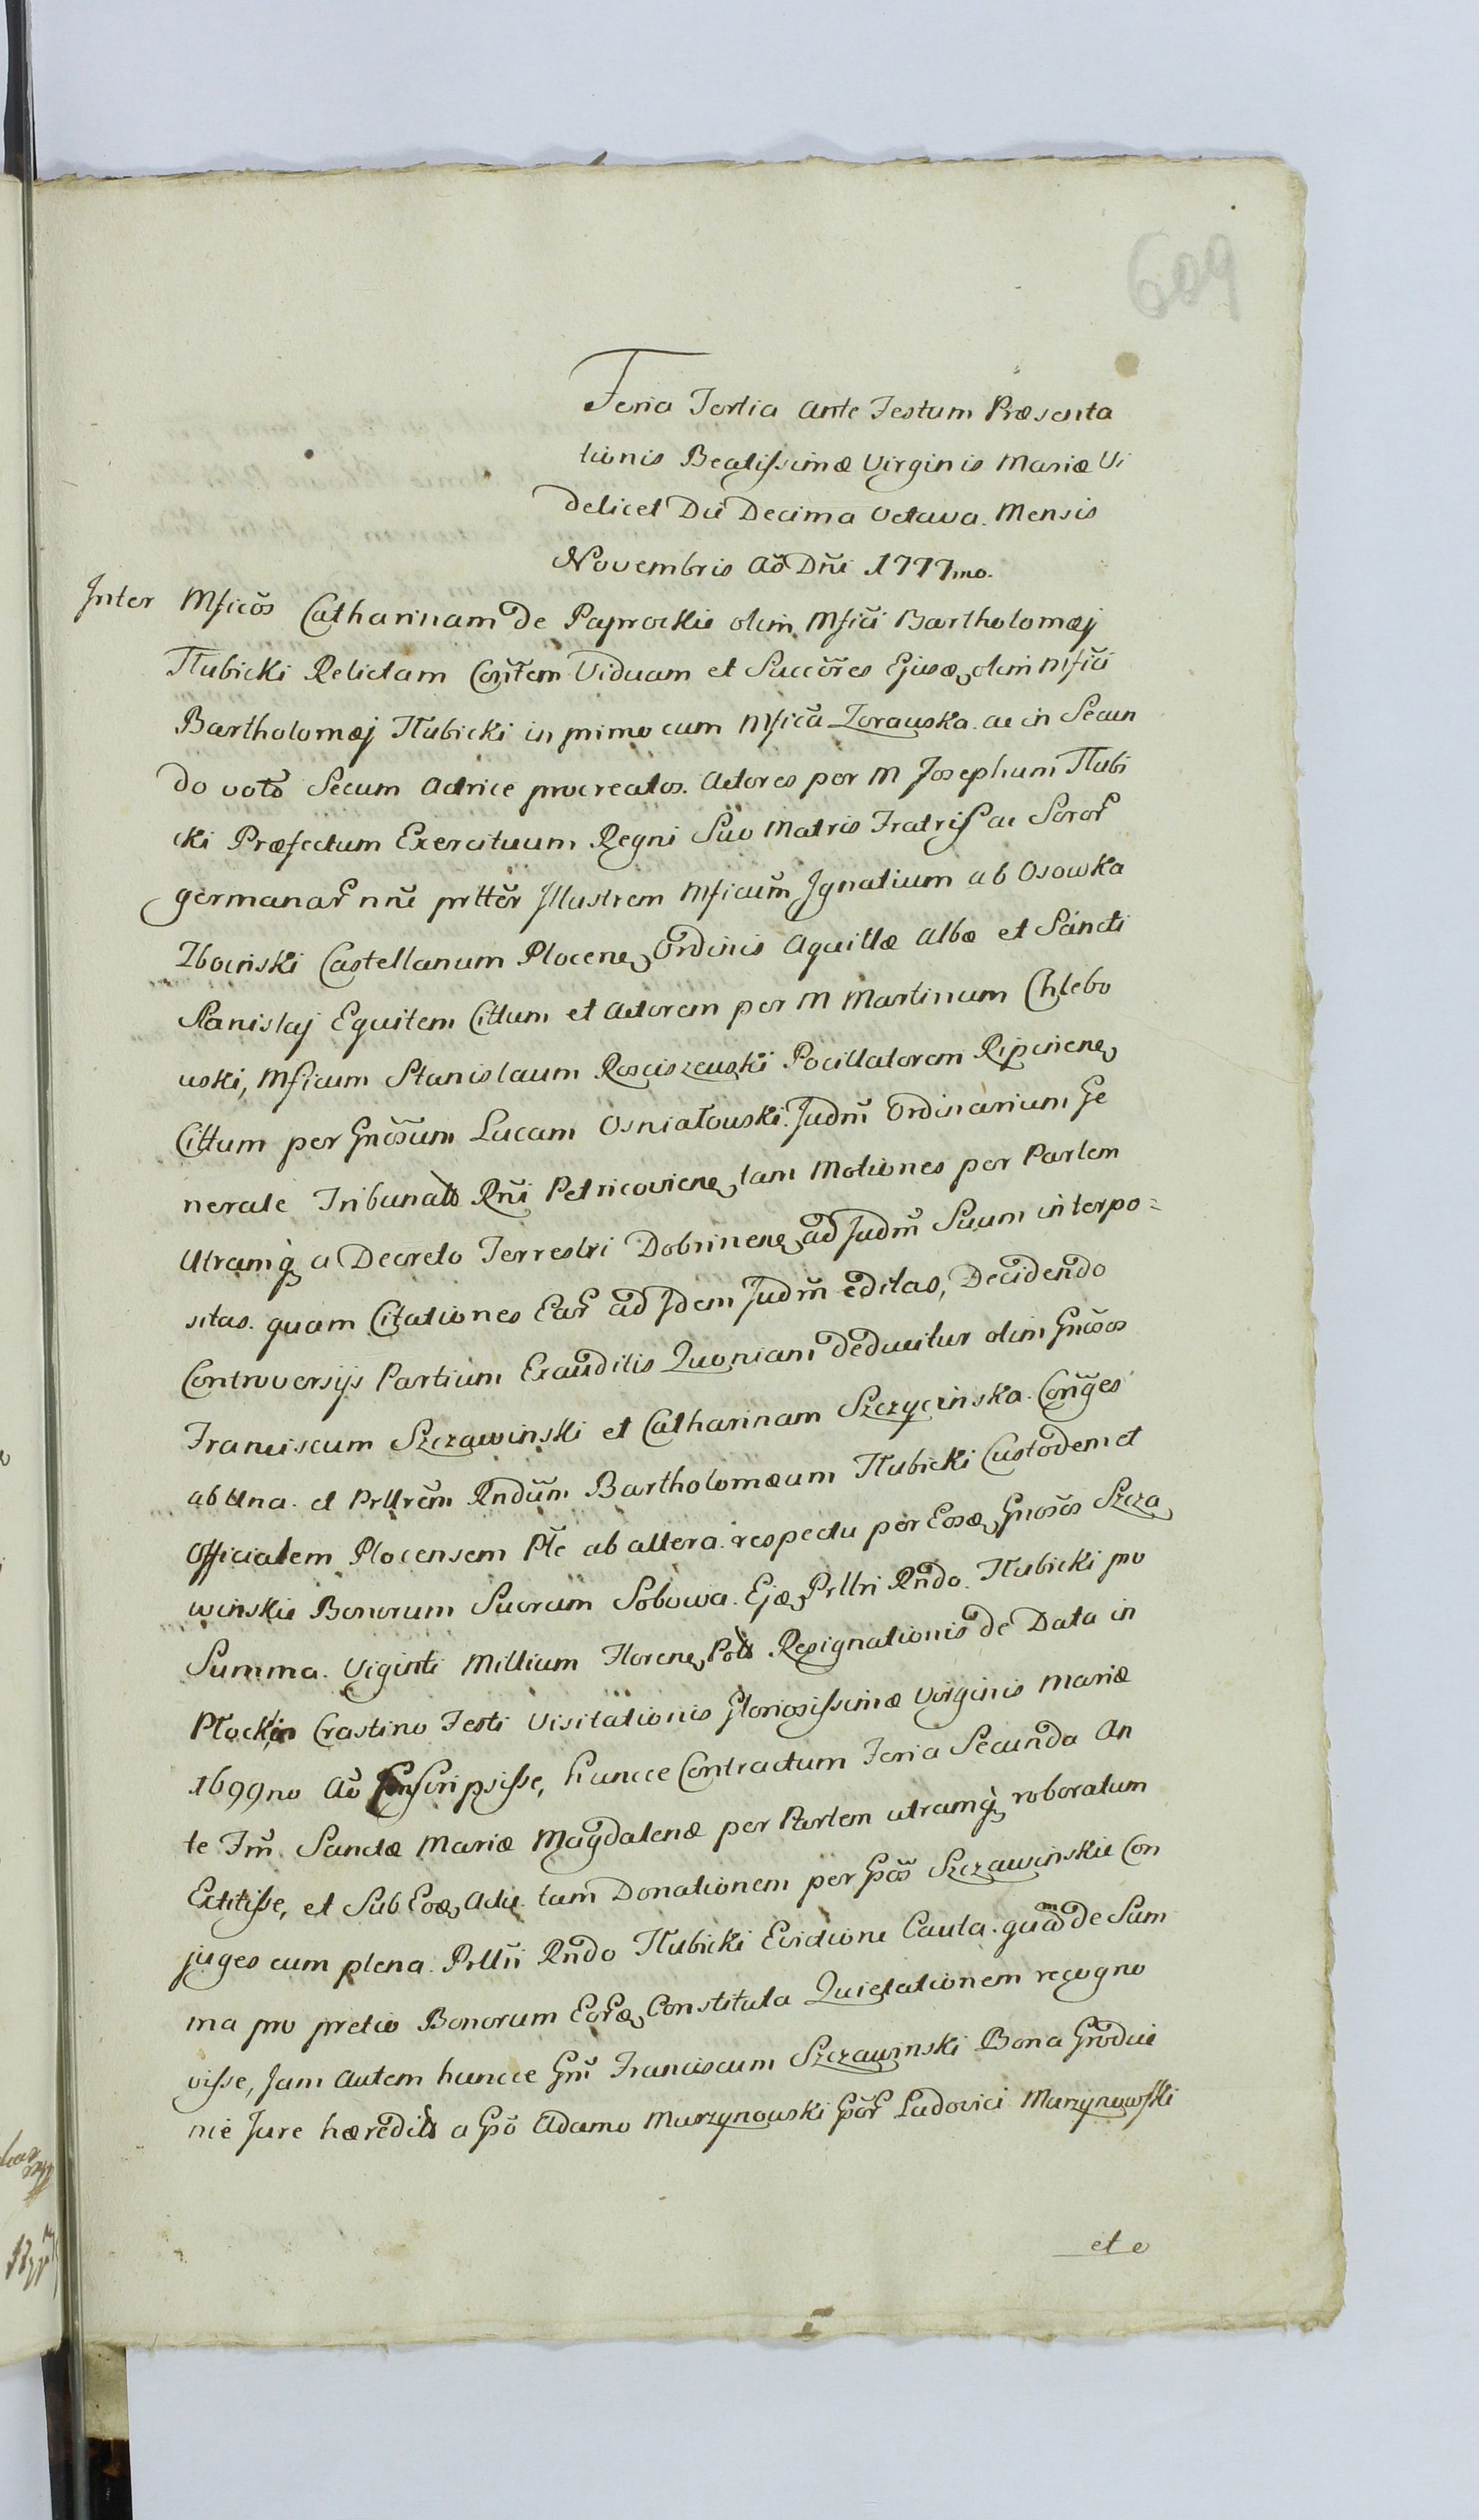 609
Feria Tertia ante Festum Præsenta
tionis Beatissimæ Virginis Mariæ Vi
delicet Die Decima Octava Mensis
Novembris Aõ Dñi 1777mo.
Inter Mficõs Catharinam de Paprockie olim Mfici Bartholomæj
Tłubicki Relictam Conĩtem Viduam et Succõres Ejusdẽ olim Mfici
Bartholomæj Tłubicki in primo cum Mficã Zorawska ac in Secun
do votõ Secum Actrice procreatos. Actores per M Josephum Tłubi
cki Præfectum Exercituum Regni Suo Matris Fratris ac Soror̃
germanar̃ nñe prttẽr Jllustrem Mficum Jgnatium ab Osowka
Zboiński Castellanum Plocenẽ Ordinis Aquillæ Albæ et Sancti
Stanislaj Equitem Cittum et Actorem per M Martinum Chlebo
wski, Mficum Stanislaum Rosciszewski Pocillatorem Ripinenẽ
Cittum per Gnõsum Lucam Osniałowski. Judm̃ Ordinarium Ge
nerale Tribunałs Rñi Petricovienẽ tam Motiones per Partem
Utramq̃ a Decreto Terrestri Dobrinenẽ ad Judm̃ Suum interpo=
sitas. quam Citationes Ear̃ ad Jdem Judm̃ editas, Decidendo
Controversijs Partium Exauditis Quoniam deducitur olim Gnõsos
Franciscum Szczawinski et Catharinam Szczycinska Conĩges
ab Una et Prllrẽm Rndũm Bartholomæum Tłubicki Custodem et
Officialem Plocensem Ptẽ ab altera respectu per Eosdẽ Gnosõs Szcza
winskie Bonorum Suorum Sobowa Ejdẽ Prllri Rndo Tłubicki pro
Summa Viginti Millium Florenẽ Pols Resignationis de Data in
Płock in Crastino Festi Visitationis Gloriosissimæ Virginis Mariæ
1699no Aõ Conscripsisse, huncce Contractum Feria Secunda An
te Fm̃ Sanctæ Mariæ Magdalenæ per Partem utramq̃ roboratum
Extitisse, et Sub Eodẽ Actu tam Donationem per Gõs Szczawinskie Con
juges cum plena Prllri Rndo Tłubicki Evictione Cauta quam de Sum
ma pro pretio Bonorum Eor̃dẽ Constituta Quietationem recogno
visse, Jam Autem huncce Gm̃ Franciscum Szczawinski Bona Grodcie
nie Jure hæredits a Gõ Adamo Murzynowski Gõr̃ Ludovici Murzynowski
et e